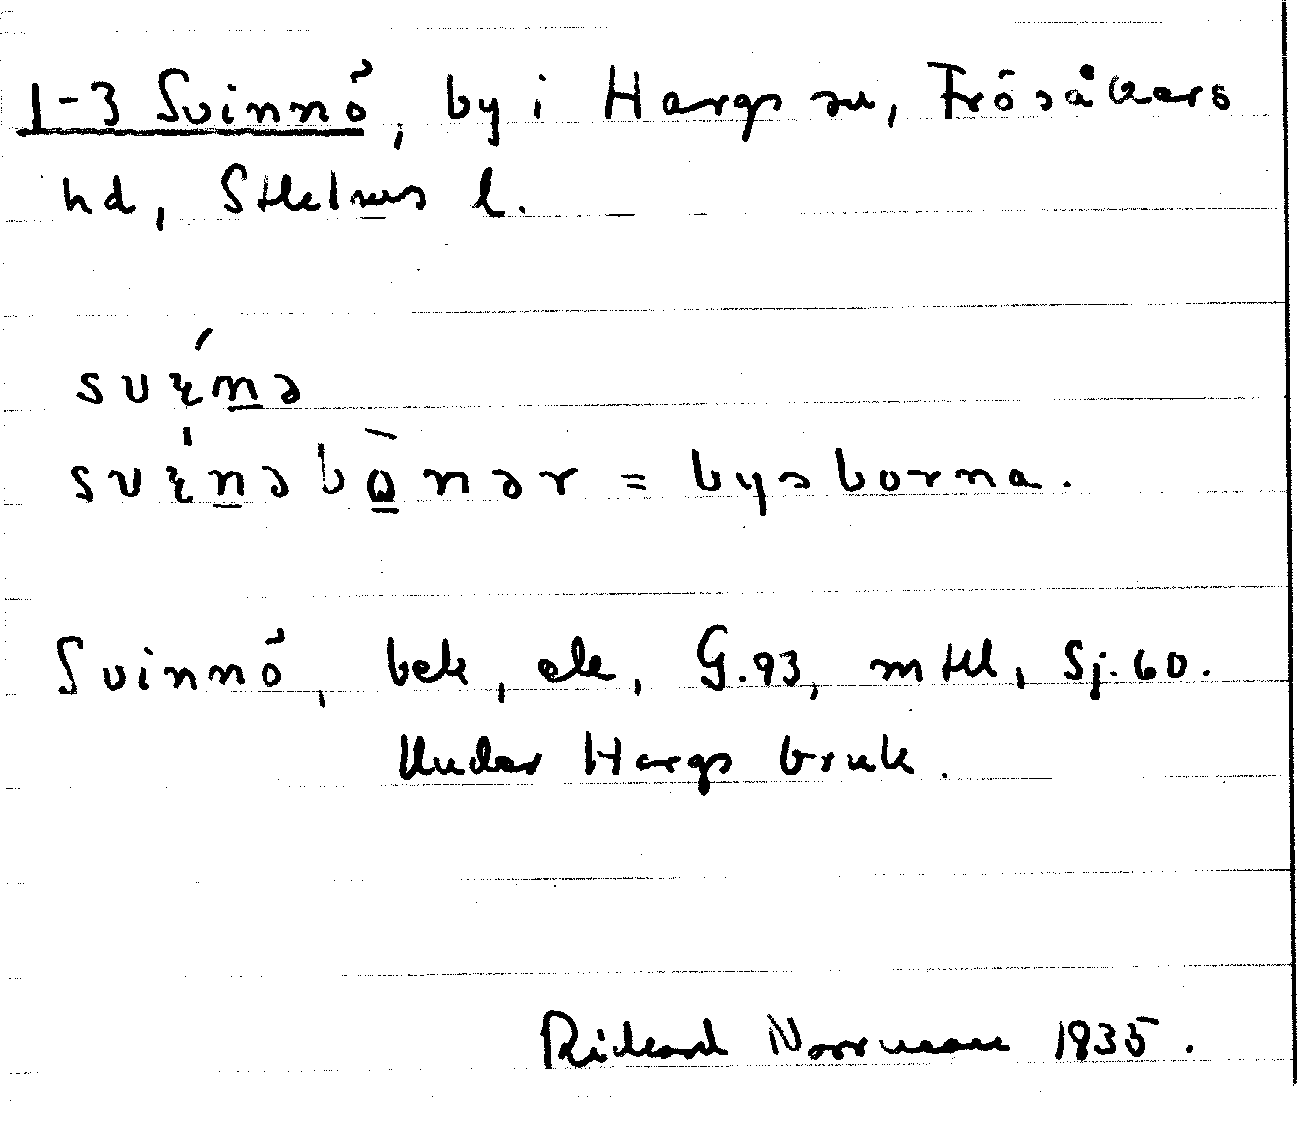 1-3 Svinnö, by i Hargs sn, Frösåkers
hd, Sthlms l.
Svinnö, bek, ek, G.93, mtl, Sj.60.
Under Hargs bruk.
Rickard Norrman 1935.